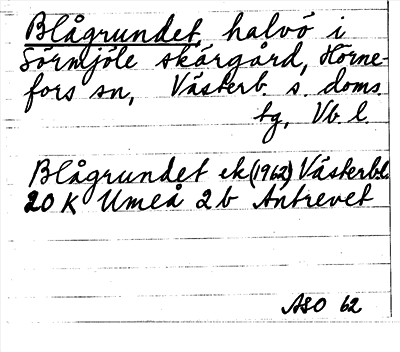 Blågrundet, halvö i
Sörmjöle skärgård, Horne-
fors sn, Västerb. s. doms.
tg, Vb. l.
Blågrundet ek (1962) Västerb.l.
20 K Umeå 2 b Antrevet
ASO 62